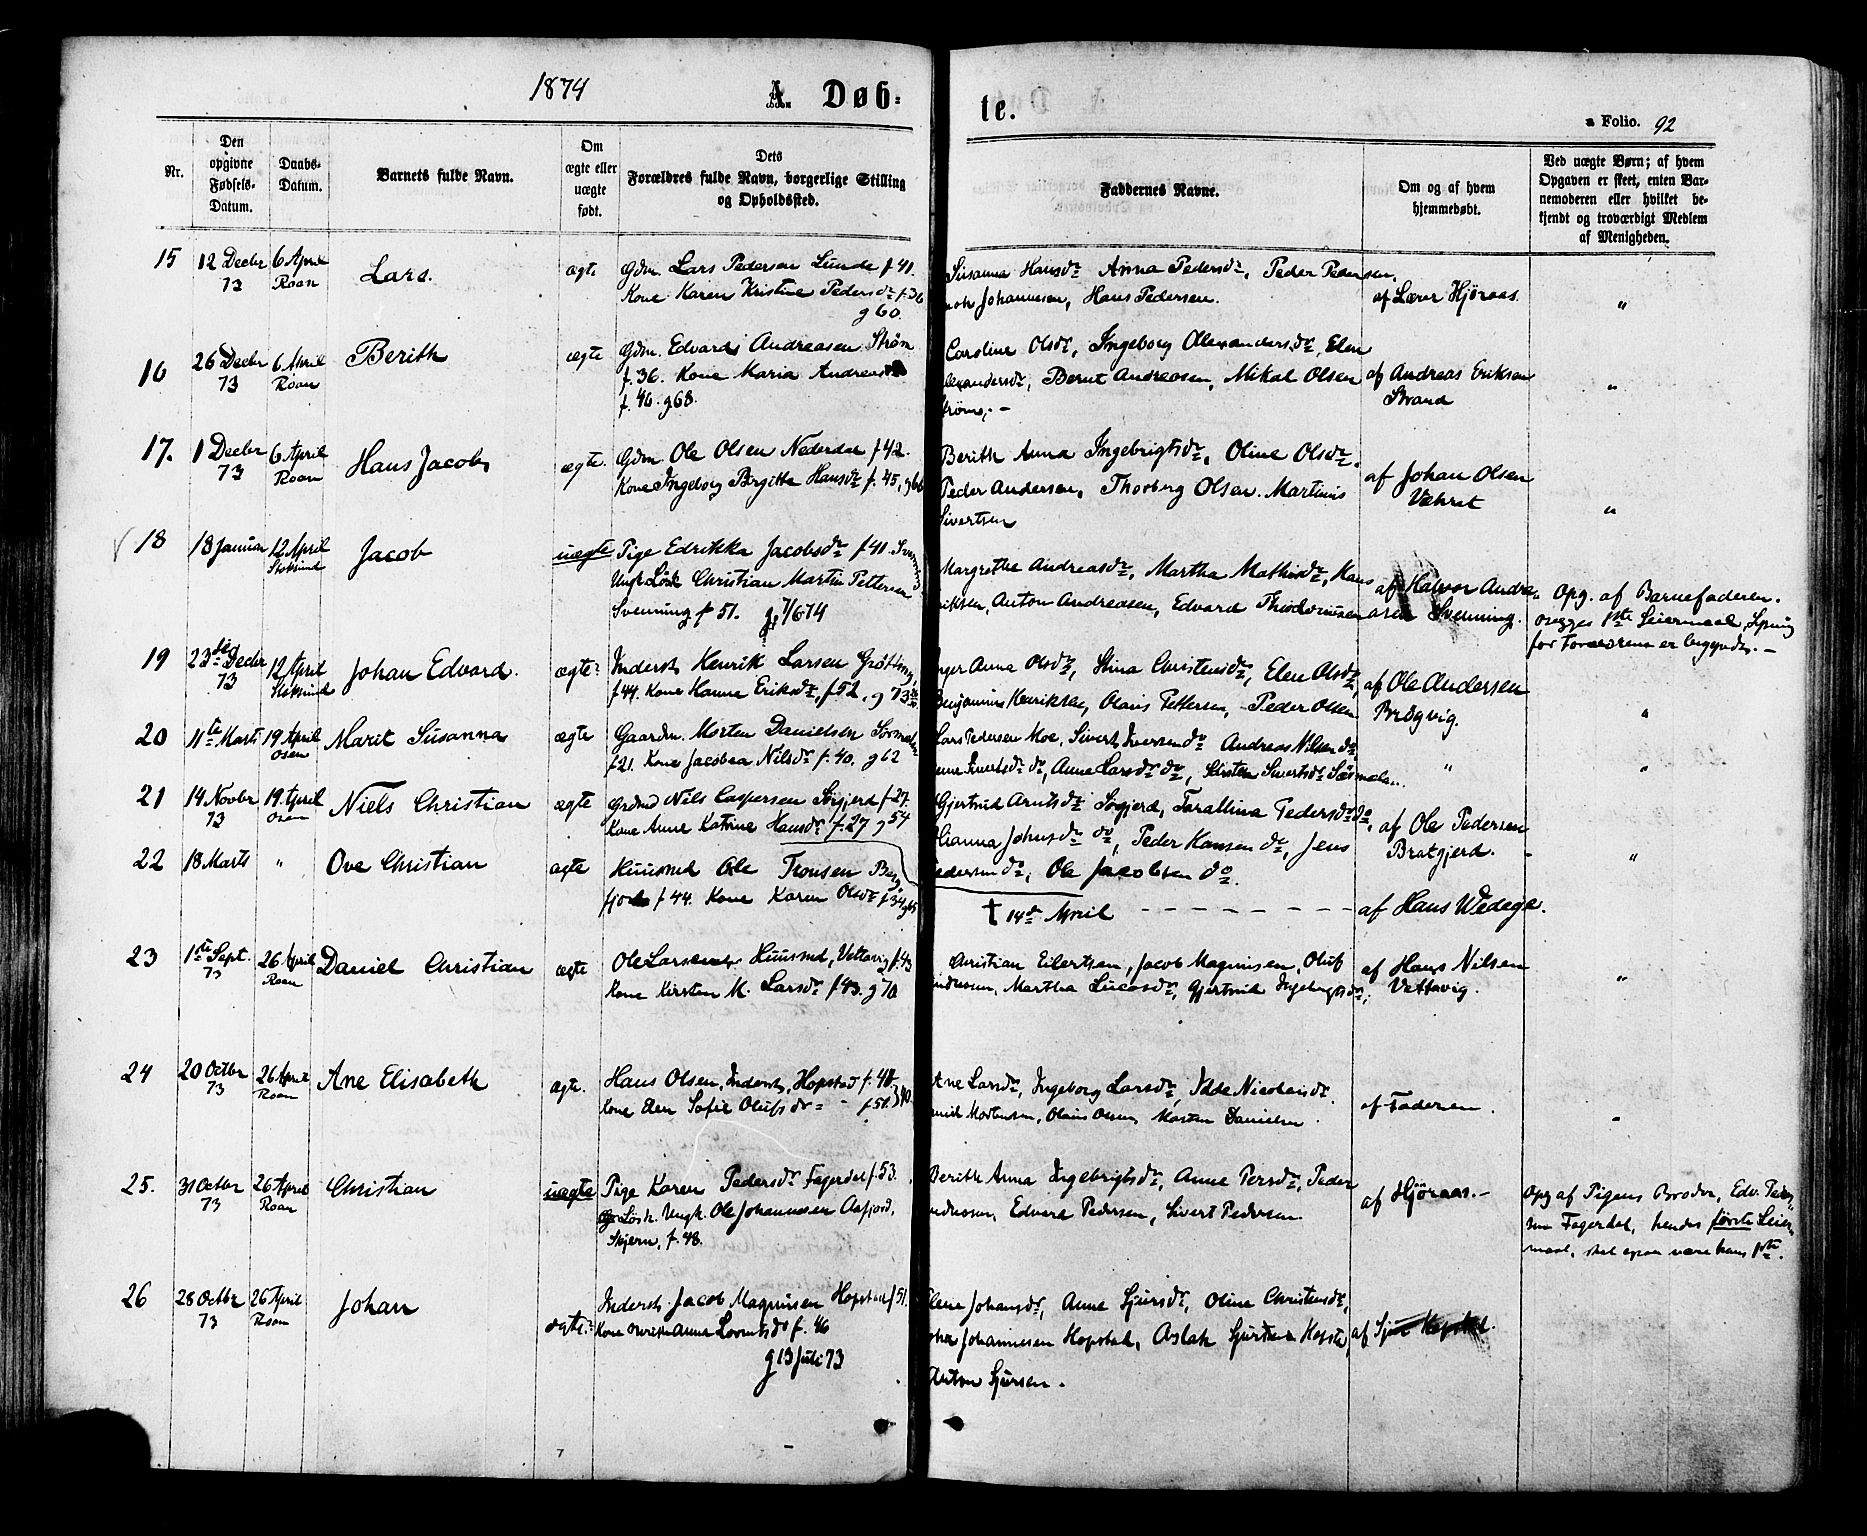 1874 A. Døb-
te.
a Folio. 92
Nr.
Den opgivne Fødsels-Datum.
Daabs-Datum.
Barnets fulde Navn.
Om ægte eller uægte født.
Dets Forældres fulde Navn, borgerlige Stilling og Opholdssted.
Faddernes Navne.
Om og af hvem hjemmedøbt.
Ved uægte Børn; af hvem Opgaven er skeet, enten Barnemoderen eller hvilket bekjendt og troværdigt Medlem af Menigheden.
15 12 Decbr 73 6 April Roan Lars. ægte
Gdm. Lars Pedersen Lunde f 41.
Kone Karen Kristine Pedersdr f. 36
g 60.
Susanna Hansdr Anna Pedersdr, Peder Pedersen,
Johannesen, Hans Pedersen.
af Lærer Hjøraas. "
16 26 Decbr 73 6 April Roan Berith ægte
Gdm. Edvard Andreasen Strøm
f. 36. Kone Maria
f. 46. g 68.
Caroline Olsdr, Ingeborg Olexandersdr, Elen
Bernt Andreasen, Mikal Olsen
af Andreas Eriksen
Strand "
17. 1 Decbr 73 6 April Roan Hans Jacob ægte.
Gdm. Ole Olsen Nederdal f 42.
Kone Ingeborg Birgitte Hansdr f. 45, g 66
Berith Anna Ingebrigtsdr, Oline Olsdr.
Peder Andersen, Thorberg Olsen. Martinus
Sivertsen
af Johan Olsen "
18 18 Januar 12 April Stoksund Jacob uægte
Pige Edrikka Jacobsdr f 41. Svenning
Ungk. Løsk Christian Martin Pettersen
Svenning f 51. g. 7/6 74
Margrethe Andreasdr, Martha Mathisdr, Hans
Eriksen, Anton Andreasen, Edvard
af Halvor Andre-
asen Svenning.
Opg. af Barnefaderen.
begges 1ste Leiermaal,
for Forældrene er begyndt. —
19 23de Decbr 73 12 April Stoksund Johan Edvard. ægte
Inderst Henrik Larsen Grøtting,
f 44. Kone Hanna Eriksdr, f 52, g 73
Inger Anna Olsdr, Stina Christensdr, Elen Olsdr,
Benjaminus Henriksen, Olaus Pettersen, Peder Olsen
af Ole Andersen "
20 11te Marts 19 April Osen Marit Susanna ægte
Gaardm. Morten Danielsen Sørmelan
f 21. Kone Jacobea Nilsdr f. 40. g 62
Lars Pedersen Moe, Sivert Iversen do Andreas Nilsen do,
Sivertsdr do, Anne Larsdr do, Kirsten Sivertsdr Sørmelan. " "
21 14 Novbr 73 19 April Osen Niels Christian ægte
Grdmd Nils Caspersen Sørgjerd f 27.
Kone Anne Katrine Hansdr f. 27 g 54
Gjertrud Arntsdr Sørgjerd, Tarallina Pedersdr do,
Johnsdr do, Peder Hansen do, Jens
Pedersen do, Ole Jacobsen do.
af Ole Pedersen
Bratgjerd. "
22 18 Marts " Ove Christian ægte
Huusmd Ole Tronsen Berg
fjord f 44. Kone Karen Olsdr f 34 g 65
† 14de April
af Hans Wedege.
23 1ste Sept. 73 26 April Roan Daniel Christian ægte
Ole Larsen, Huusmd, Vettavig f. 43
Kone Kirsten M. Larsdr f 43. g 70
Christian Eilertsen, Jacob Magnusen, Oluf
Andresen, Martha Lucasdr, Gjertrud Ingebrigtsdr,
af Hans Nilsen
Vettavig. "
24 20 Octbr 73 26 April Roan Ane Elisabeth ægte.
Hans Olsen, Inderst, Hopstad f. 48
Kone Elen Sofie Olufsdr f 51.
Ane Larsdr, Ingeborg Larsdr, Nicolaisdr.
Mortensen, Olaus Olsen, Morten Danielsen.
af Faderen. "
25. 31 Octbr 73 26 April Roan Christian uægte
Pige Karen Pedersdr Fagerdal f 53.
Løsk. Ungk. Ole Johannesen Aafjord,
Skjern, f. 48.
Berith Anna Ingebrigtsdr, Anne Persdr, Peder
Andresen, Edvard Pedersen, Sivert Pedersen.
af Hjøraas. —
Opg af Pigens Broder, Edv. Peder-
sen Fagerdal, hendes første Leier-
maal, skal ogsaa være hans 1ste.
26 28 Octbr 73 26 April Roan Johan ægte
Inderst. Jacob Magnusen Hopstad f 51.
Kone Anna f. 46
g 13 Juli 73
Elene Johansdr, Anne Sjursdr, Oline Christensdr,
Johannesen Hopstad, Aslak Sjursen Hopstad,
Anton Sjursen.
af